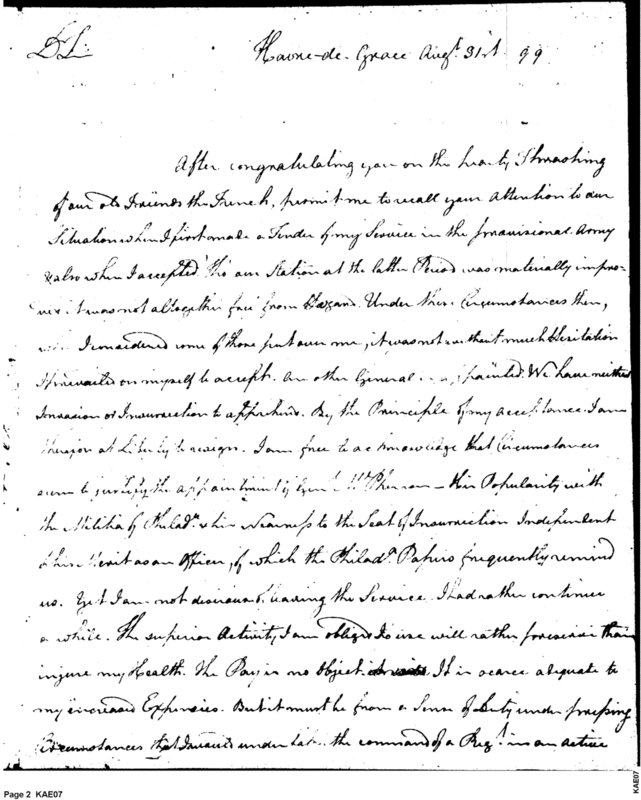 D Sir
Havre-de-Grace Augt. 31st 99
After congratulating you on the hearty Thrashing
of our old Friends the French, permit me to recall your attention to our
Situation when I first made a Tender of my Service in the Provisional Army
& also when I accepted. Tho our Station at the latter Period was materially impro-
ved it was not altogether free from Hazard. Under these Circumstances then,
I considered some of those put over me, it was not without much Hesitation
I prevailed on myself to accept. An other General is appointed. We have neither
Invasion or Insurrection to apprehend. By the Principle of my acceptance I am
therefore at Liberty to resign. I am free to acknowledge that Circumstances
seem to justify the appointment of Genl. McPherson – His Popularity with
the Militia of Philada. his Nearness to the Seat of Insurrection Independent
of his Merit as an Officer, of which the Philada. Papers frequently remind
us. Yet I am not desirous of leaving the Service. I had rather continue
a while. The superior Activity I am obliged to use will rather preserve than
injure my Health. The Pay is no Object. It is scarce adequate to
my increased Expences. But it must be from a Sense of Duty under pressing
Circumstances that I would undertake the command of a Regt. in an active
Page 2 KAE07
KAE07